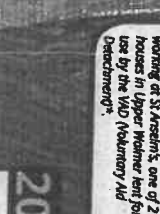 working at St Anselm's, one of 2
houses in Upper Walmer lent for
use by the VAD (Voluntary Aid
Detachment).
20